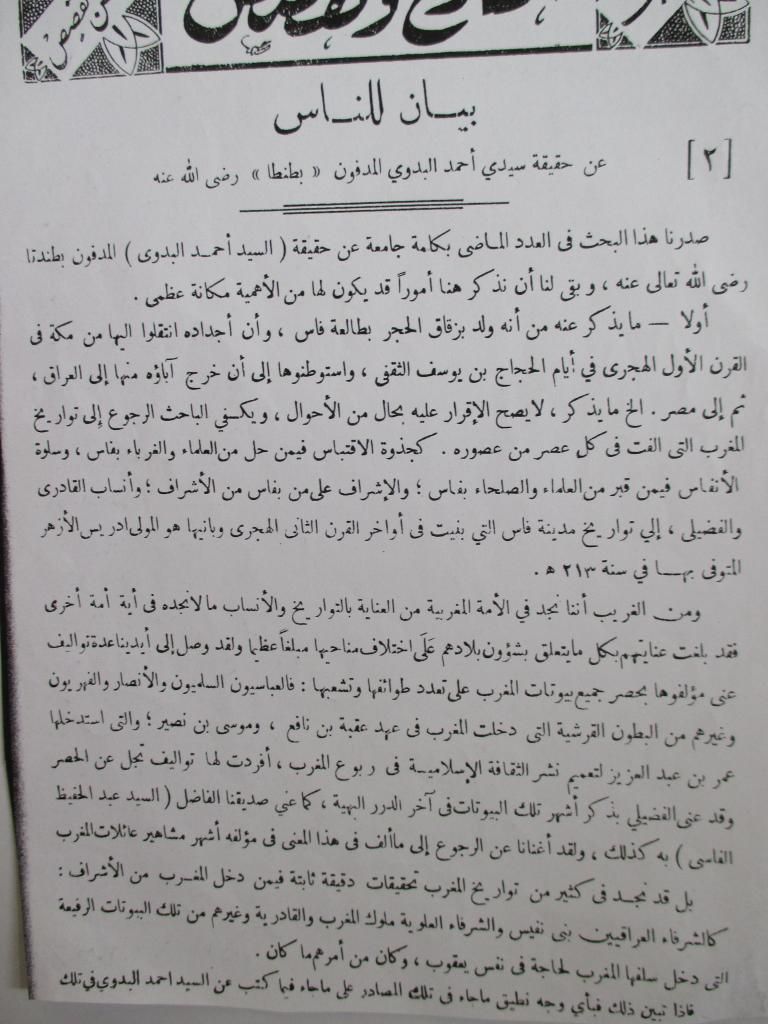 بيان للناس
[ ٢ ]
عن حقيقة سيدي أحمد البدوي المدفون « بطنطا » رضى الله عنه
صدرنا هذا البحث فى العدد الماضى بكلمة جامعة عن حقيقة ( السيد أحمد البدوى ) المدفون بطندتا
رضى الله تعالى عنه ، و بقى لنا أن نذكر هنا أموراً قد يكون لها من الأهمية مكانة عظمى .
أولا — ما يذكر عنه من أنه ولد بزقاق الحجر بطالعة فاس ، وأن أجداده انتقلوا اليها من مكة فى
القرن الأول الهجرى في أيام الحجاج بن يوسف الثقفى ، واستوطنوها إلى أن خرج آباؤه منها إلى العراق ،
ثم إلى مصر . الخ ما يذكر ، لا يصح الإقرار عليه بحال من الأحوال ، ويكفي الباحث الرجوع إلى تواريخ
المغرب التى الفت فى كل عصر من عصوره . كجذوة الاقتباس فيمن حل من العلماء والغرباء بفاس ، وسلوة
الأنفاس فيمن قبر من العلماء والصلحاء بفاس ؛ والإشراف على من بفاس من الأشراف ؛ وأنساب القادرى
والفضيلى ، إلي تواريخ مدينة فاس التي بنيت فى أواخر القرن الثانى الهجرى وبانيها هو المولى ادريس الأزهر
المتوفى بهـا في سنة ٢١٣ ه .
ومن الغريب أننا نجد في الأمة المغربية من العناية بالتواريخ والأنساب ما لانجده فى أية أمة أخرى
فقد بلغت عنايتهم بكل ما يتعلق بشؤون بلادهم عَلَى اختلاف مناحيها مبلغاً عظيما ولقد وصل إلى أيدينا عدة تواليف
عنى مؤلفوها بحصر جميع بيوتات المغرب على تعدد طوائفها وتشعبها : فالعباسيون السلميون والأنصار والفهريون
وغيرهم من البطون القرشية التى دخلت المغرب فى عهد عقبة بن نافع ، وموسى بن نصير ؛ والتى استدخلها
عمر بن عبد العزيز لتعميم نشر الثقافة الإسلامية فى ربوع المغرب ، أفردت لها تواليف تجل عن الحصر
وقد عنى الفضيلي بذكر أشهر تلك البيوتات فى آخر الدرر البهية ، كما عني صديقنا الفاضل ( السيد عبد الحفيظ
الفاسى ) به كذلك ، ولقد أغنانا عن الرجوع إلى ما ألف فى هذا المعنى فى مؤلفه أشهر مشاهير عائلات المغرب
بل قد نجد فى كثير من تواريخ المغرب تحقيقات دقيقة ثابتة فيمن دخل المغرب من الأشراف :
كالشرفاء العراقيين بنى نفيس والشرفاء العلوية ملوك المغرب والقادرية وغيرهم من تلك البيوتات الرفيعة
التى دخل سلفها المغرب لحاجة فى نفس يعقوب ، وكان من أمرهم ما كان .
فاذا تبين ذلك فبأي وجه نطبق ماجاء فى تلك المصادر على ماجاء فيما كتب عن السيد احمد البدوي في تلك